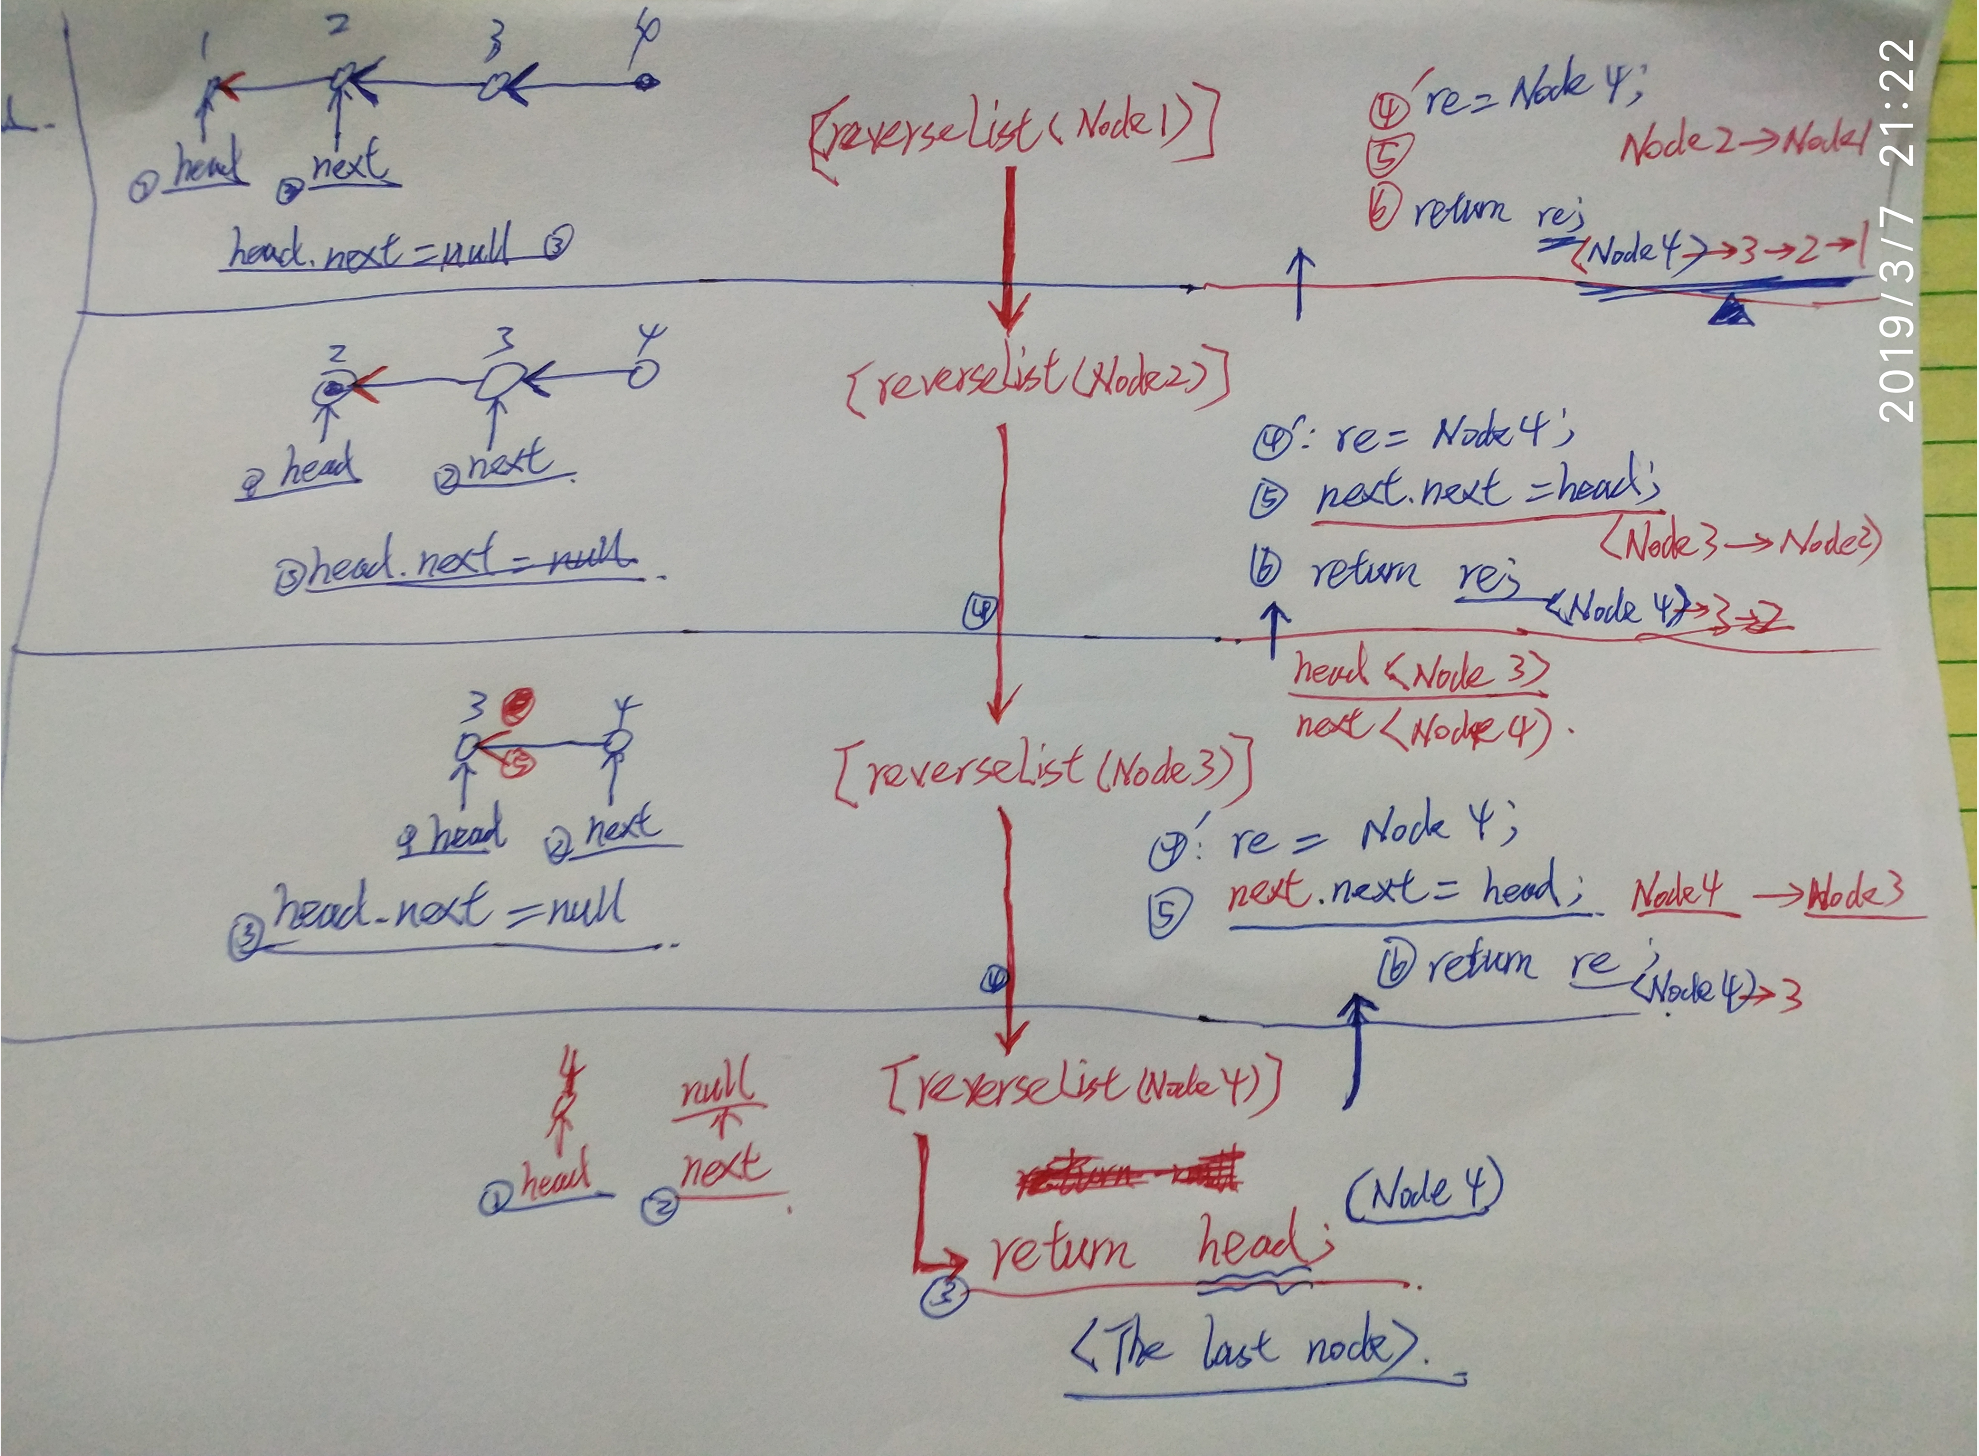 1 2 3 4
① head ② next
head.next = null ③
[reverseList(Node1)]
④' re = Node 4;
⑤ Node2 → Node1
⑥ return re;
<Node 4> → 3 → 2 → 1
2019/3/7 21:22
2 3 4
① head ② next
③ head.next = null
[reverseList(Node2)]
④': re = Node 4;
⑤ next.next = head;
<Node3 → Node2>
⑥ return re;
<Node 4> → 3 → 2
④
3 4
⑤
① head ② next
③ head.next = null
head <Node 3>
next <Node 4>.
[reverseList(Node3)]
④': re = Node 4;
⑤ next.next = head; Node4 → Node3
⑥ return re;
<Node 4> → 3
④
4 null
① head ② next
[reverseList(Node4)]
return null
(Node 4)
③ return head;
<The last node>.